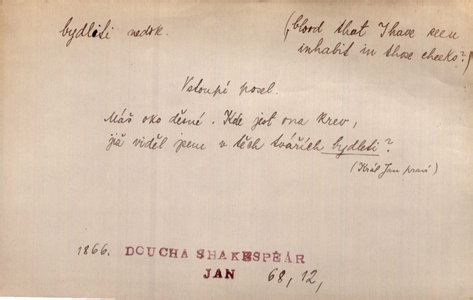 bydleti nedok.
(„blood that I have seen
inhabit in those cheeks?“)
Vstoupí posel.
Máš oko děsné. Kde jest ona krev,
již viděl jsem v těch tvářích bydleti?
(Král Jan praví)
1866. DOUCHA SHAKESPEAR
JAN 68, 12,